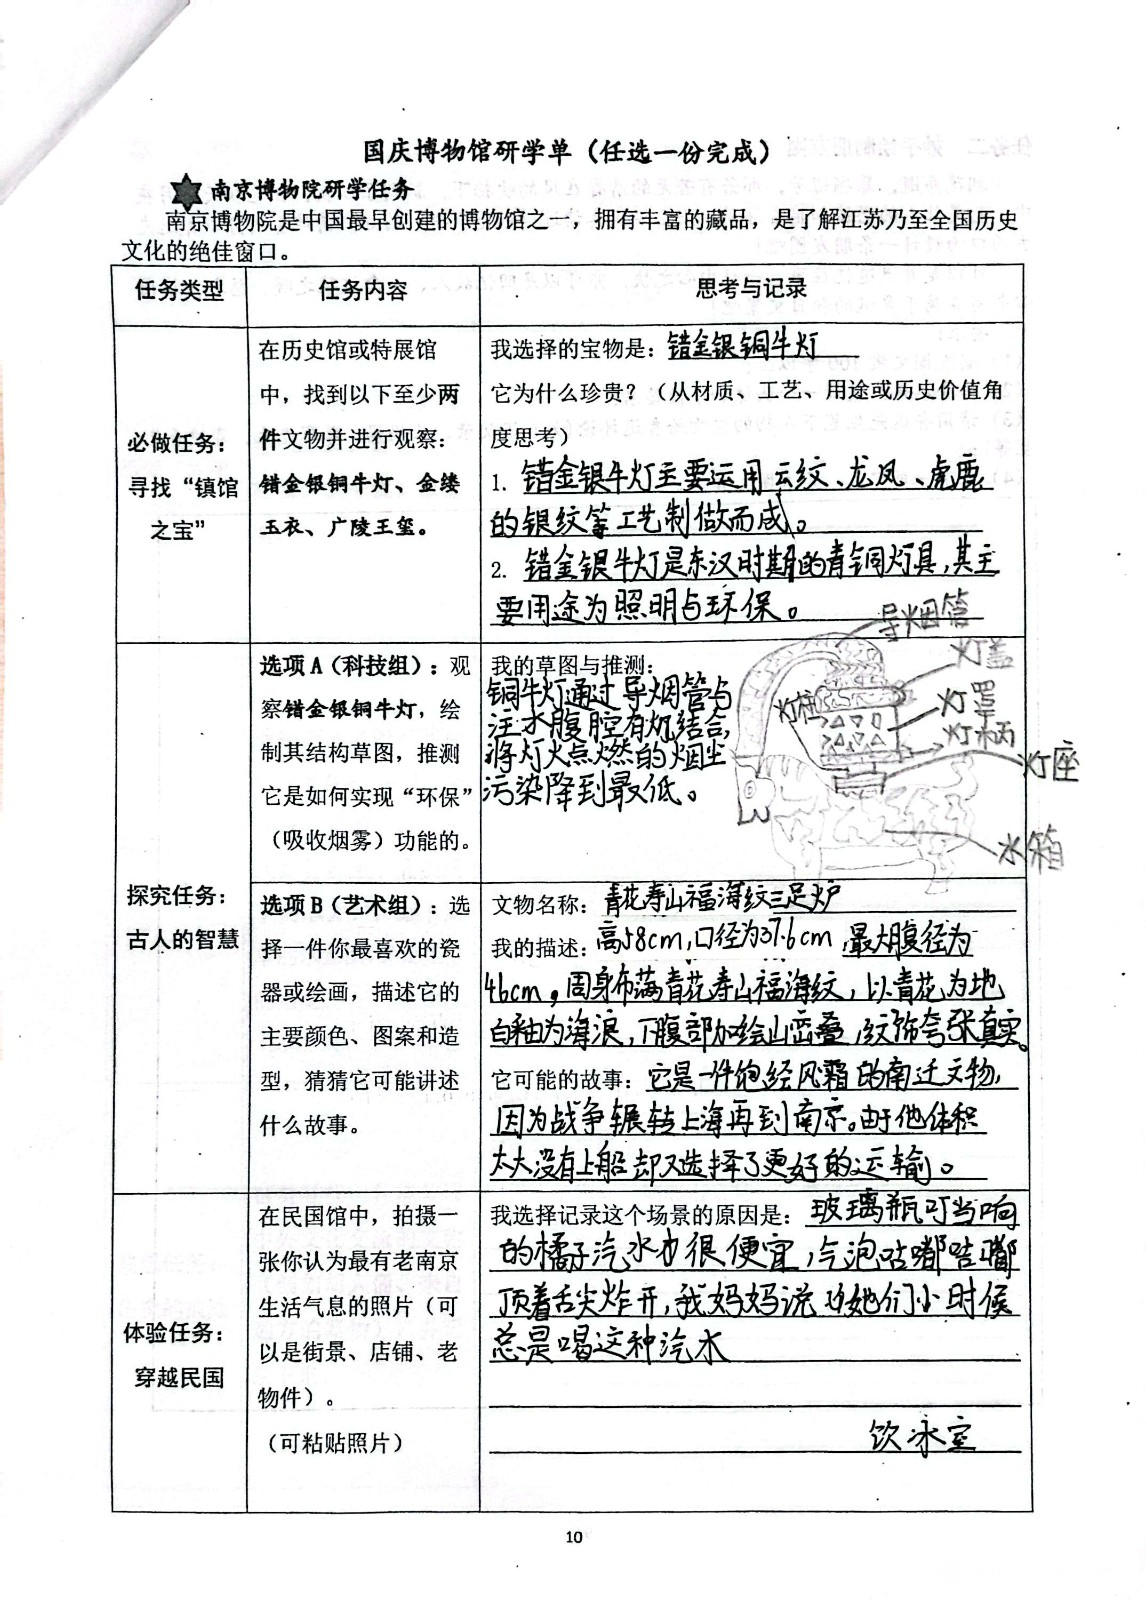 国庆博物馆研学单（任选一份完成）
南京博物院研学任务
南京博物院是中国最早创建的博物馆之一，拥有丰富的藏品，是了解江苏乃至全国历史
文化的绝佳窗口。
任务类型
任务内容
思考与记录
必做任务：
寻找“镇馆
之宝”
在历史馆或特展馆
中，找到以下至少两
件文物并进行观察：
错金银铜牛灯、金缕
玉衣、广陵王玺。
我选择的宝物是：错金银铜牛灯
它为什么珍贵？（从材质、工艺、用途或历史价值角
度思考）
1. 错金银牛灯主要运用云纹、龙凤、虎鹿
的银纹等工艺制做而成。
2. 错金银牛灯是东汉时期的青铜灯具，其主
要用途为照明与环保。
探究任务：
古人的智慧
选项A（科技组）：观
察错金银铜牛灯，绘
制其结构草图，推测
它是如何实现“环保”
（吸收烟雾）功能的。
我的草图与推测：
铜牛灯通过导烟管与
注水腹腔有机结合，
将灯火点燃的烟尘
污染降到最低。
导烟管
灯盖
灯罩
灯柄
灯座
水箱
选项B（艺术组）：选
择一件你最喜欢的瓷
器或绘画，描述它的
主要颜色、图案和造
型，猜猜它可能讲述
什么故事。
文物名称：青花寿山福海纹三足炉
我的描述：高58cm，口径为37.6cm，最大腹径为
46cm。周身布满青花寿山福海纹，以青花为地
白釉为海浪，下腹部加绘山峦叠，纹饰夸张真实。
它可能的故事：它是一件饱经风霜的南迁文物，
因为战争辗转上海再到南京。由于他体积
太大没有上船却又选择了更好的运输。
体验任务：
穿越民国
在民国馆中，拍摄一
张你认为最有老南京
生活气息的照片（可
以是街景、店铺、老
物件）。
（可粘贴照片）
我选择记录这个场景的原因是：玻璃瓶叮当响
的橘子汽水也很便宜，气泡咕嘟咕嘟
顶着舌尖炸开，我妈妈说她们小时候
总是喝这种汽水
饮冰室
10